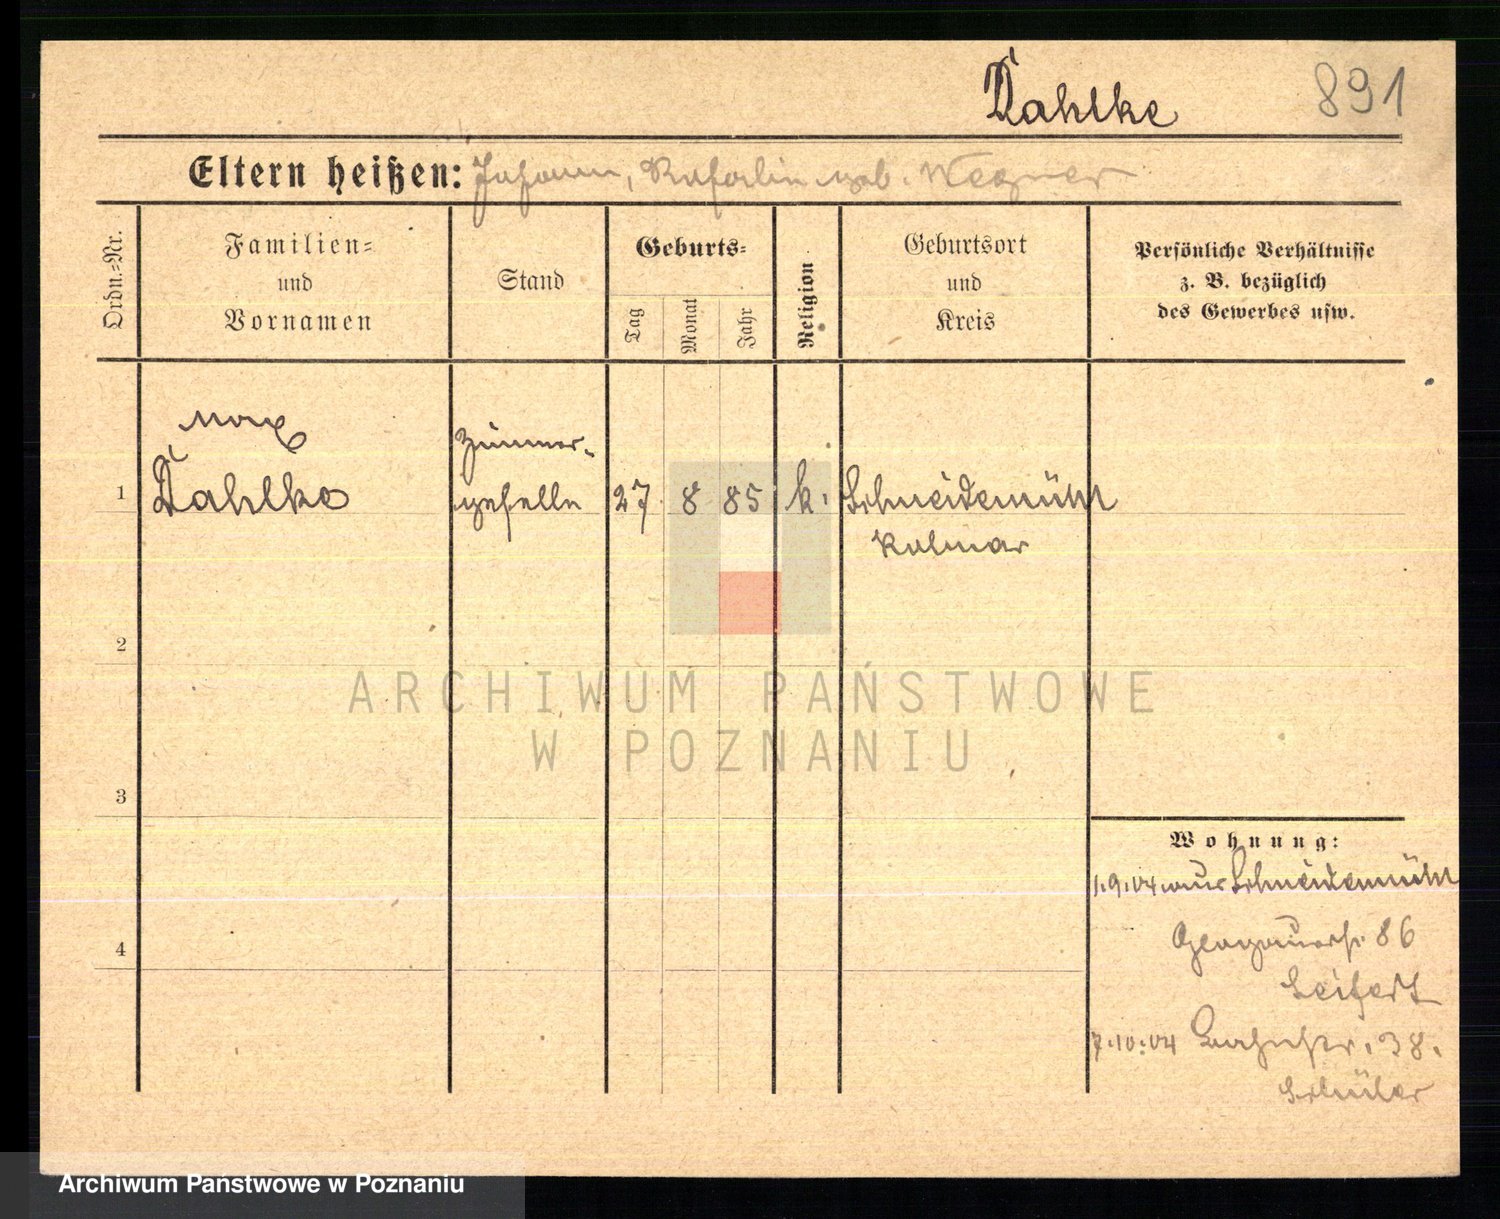 Dahlke
891
Eltern heißen: Johann, Katarlin geb. Wegner
Ordn.=Nr.
Familien=
und
Vornamen
Stand
Geburts=
Tag
Monat
Jahr
Religion
Geburtsort
und
Kreis
Persönliche Verhältnisse
z. B. bezüglich
des Gewerbes usw.
Max
1 Dahlke
Zimmer-
geselle
27 8 85 k. Schneidemühl
Kolmar
2
3
4
ARCHIWUM PAŃSTWOWE
W POZNANIU
Wohnung:
1.9.04 aus Schneidemühl
Glogauerstr. 86
Seifert
7.10.04 38.
Schüler
Archiwum Państwowe w Poznaniu